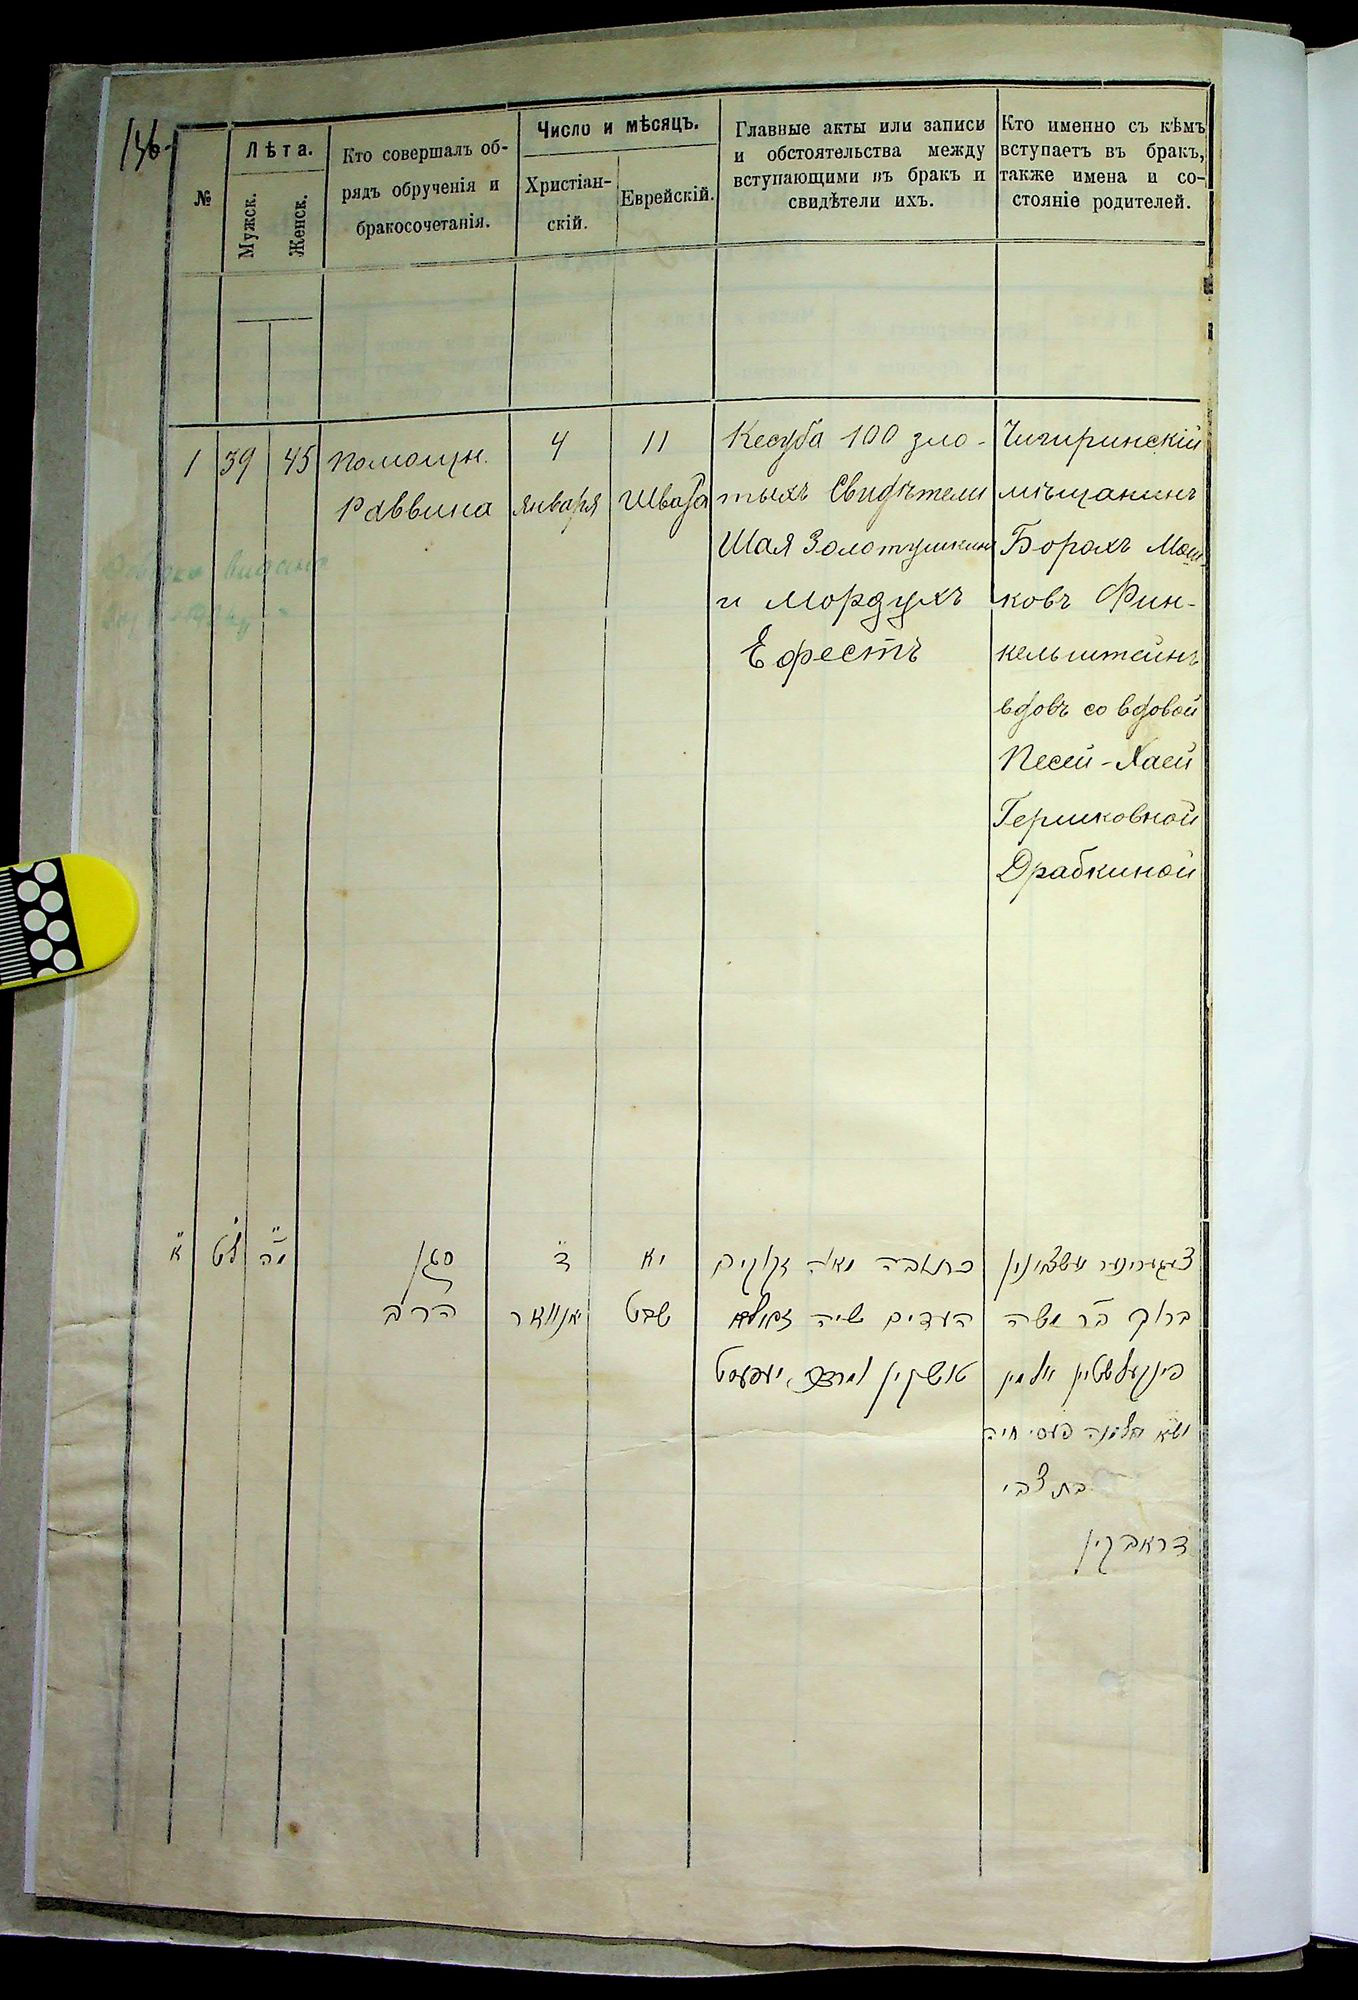 №
Лѣта.
Мужск.
Женск.
Кто совершалъ об-
рядъ обрученія и
бракосочетанія.
Число и мѣсяцъ.
Христіан-
скій.
Еврейскій.
Главные акты или записи
и обстоятельства между
вступающими въ бракъ и
свидѣтели ихъ.
Кто именно съ кѣмъ
вступаетъ въ бракъ,
также имена и со-
стояніе родителей.
1
39
45
Помощн.
Раввина
4
Января
11
Швата
Кесуба 100 зло-
тыхъ Свидѣтели
Шая Золотушкинъ
и Мордухъ
Ефестъ
Чигиринскій
мѣщанинъ
Борохъ Мош-
ковъ Фин-
кельштейнъ
вдовъ со вдовой
Песей-Хаей
Гершковной
Драбкиной
א
לט
מה
סגן
הרב
ד
יאנוואר
יא
שבט
כתובה מאה זקוקים
העדים שיה
טושקין
ברוך בר משה
פינקעלשטיין אלמן
נשא אלמנה פעסי חיה
בת צבי
דראבקין